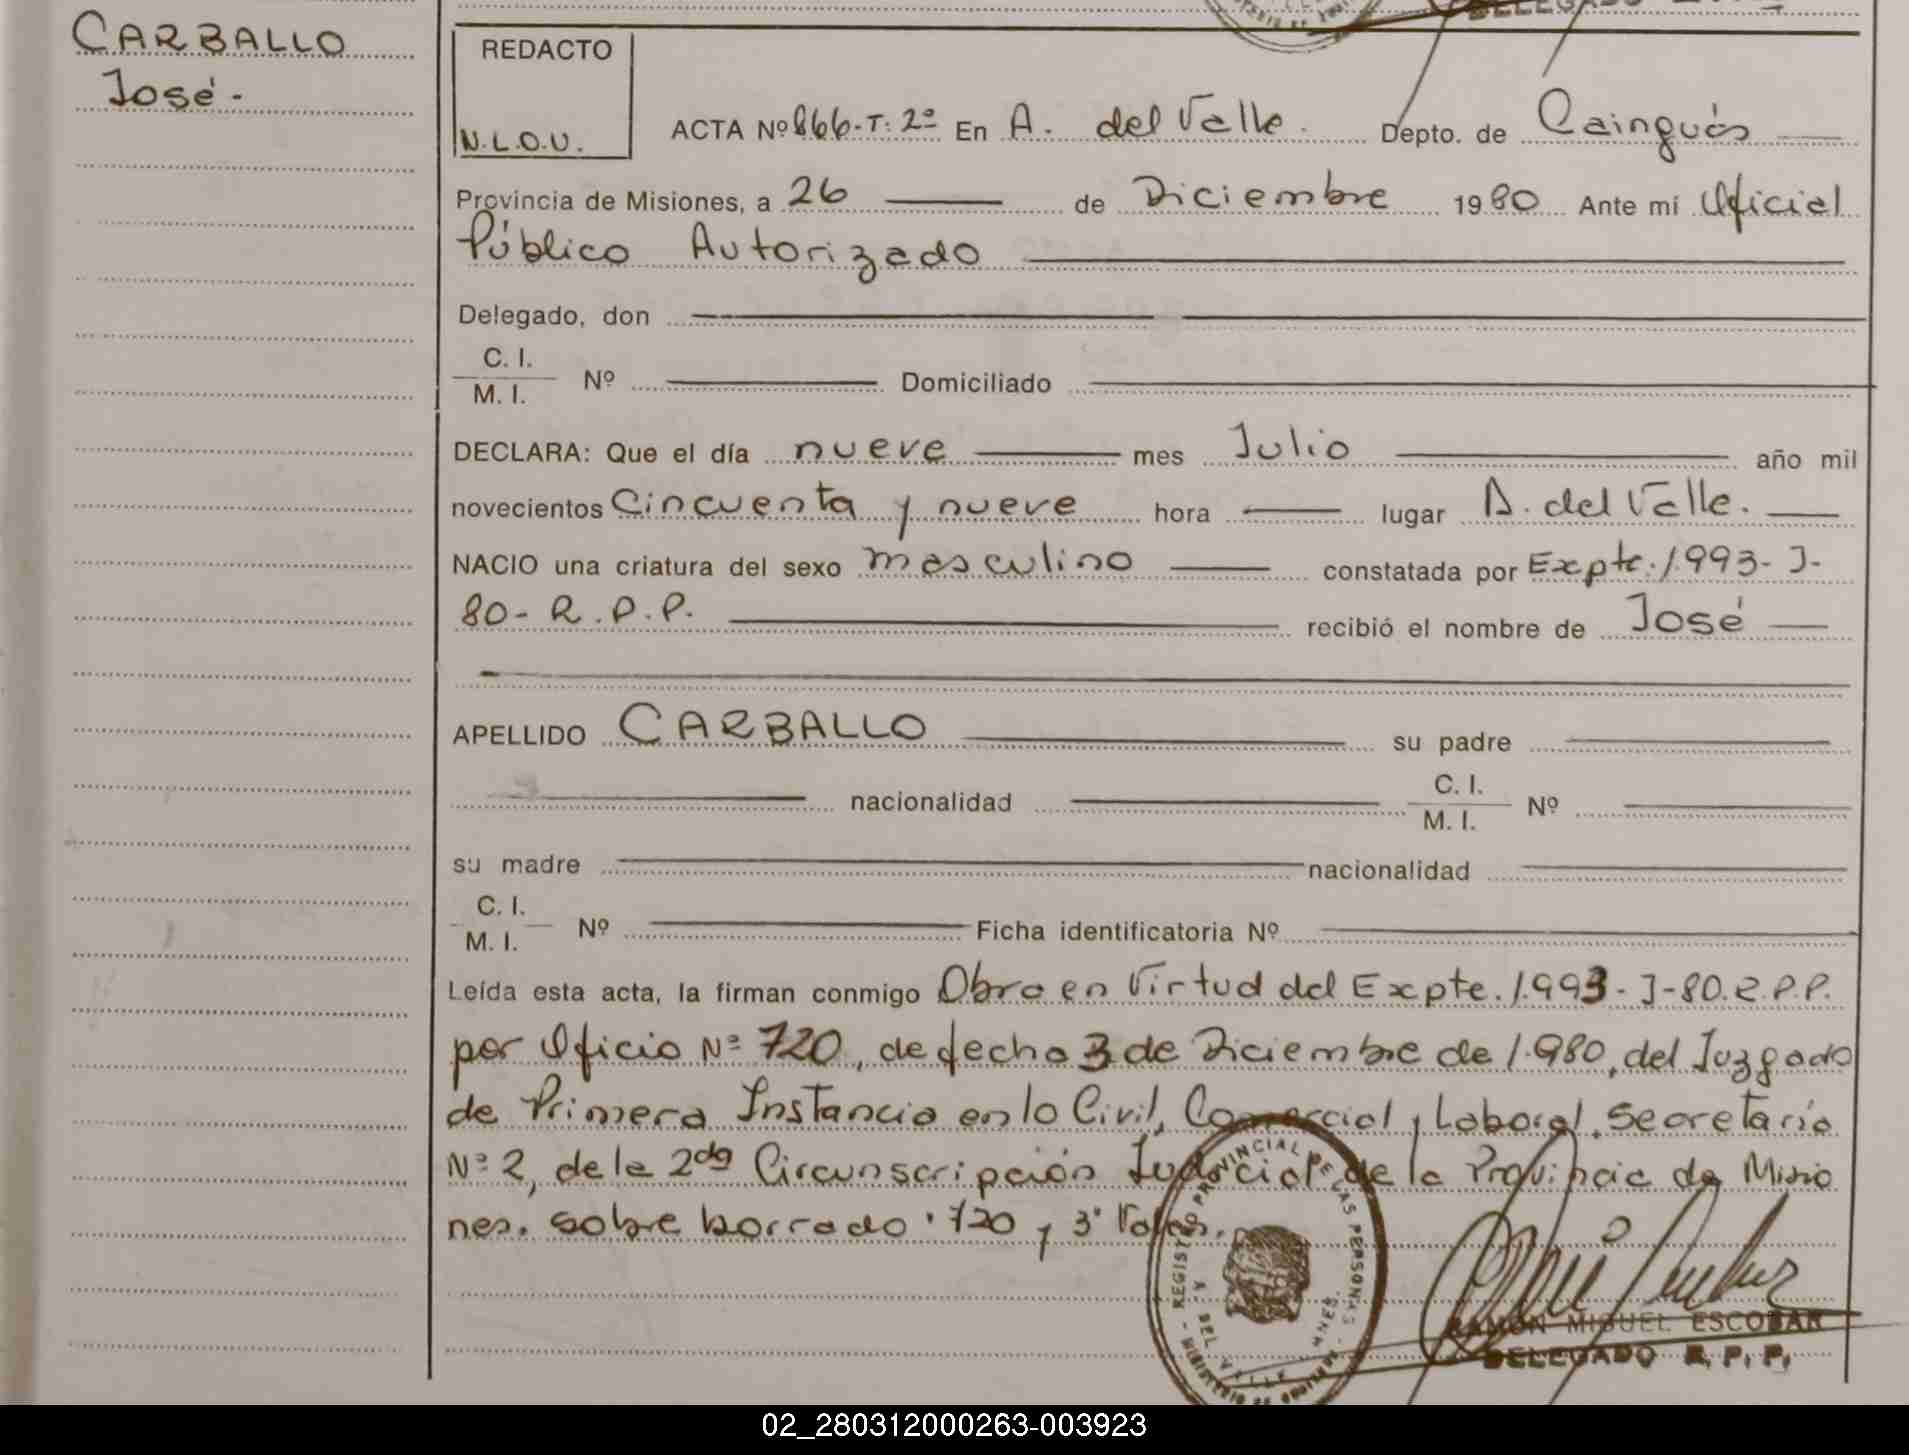 CARBALLO
José.-
REDACTO
N.L.O.U.
ACTA Nº 866-T: 2º En A. del Valle. Depto. de Cainguás
Provincia de Misiones, a 26 de Diciembre 1980 Ante mi Oficial
Público Autorizado
Delegado, don
C. I.
M. I.
Nº Domiciliado
DECLARA: Que el día nueve mes Julio año mil
novecientos Cincuenta y nueve hora lugar A. del Valle.
NACIO una criatura del sexo masculino constatada por Expte. 1.993- J-
80- R.P.P. recibió el nombre de José
APELLIDO CARBALLO su padre
nacionalidad C. I.
M. I. Nº
su madre nacionalidad
C. I.
M. I.
Nº Ficha identificatoria Nº
Leída esta acta, la firman conmigo Obra en Virtud del Expte. 1.993- J-80.R.P.P.
por Oficio Nº 720, de fecha 3 de Diciembre de 1.980, del Juzgado
de Primera Instancia en lo Civil, Comercial y Laboral, Secretaría
Nº 2, de la 2da Circunscripción Judicial de la Provincia de Misio
nes. sobre borrado "720 y 3" Valen.
REGISTRO PROVINCIAL DE LAS PERSONAS
DEL VALLE MNES.
MINISTERIO DE GOBIERNO
RAMON MIGUEL ESCOBAR
DELEGADO R. P. P.
02_280312000263-003923